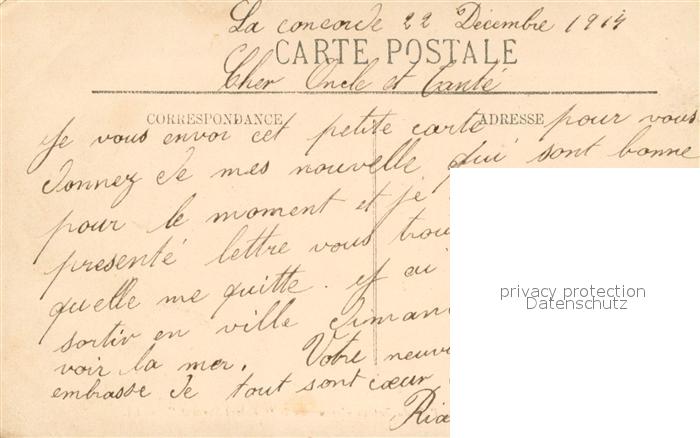 La concorde 22 Décembre 1914
CARTE POSTALE
Cher Oncle et Tanté
CORRESPONDANCE
ADRESSE
Je vous envoi cet petite carte pour vous
donnez de mes nouvelle qui sont bonne
pour le moment et je
presenté lettre vous trou
quelle me quitte. Jf ai
sortir en ville diman
voir la mer. Votre neuv
embrasse de tout sont cœur
privacy protection
Datenschutz